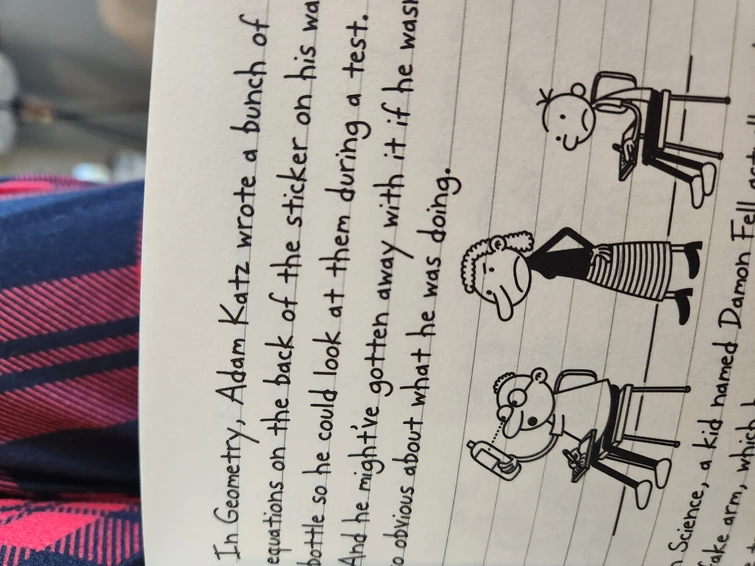 In Geometry, Adam Katz wrote a bunch of
equations on the back of the sticker on his
bottle so he could look at them during a test.
And he might've gotten away with it if he
obvious about what he was doing.
Science, a kid named Damon Fell
arm, which